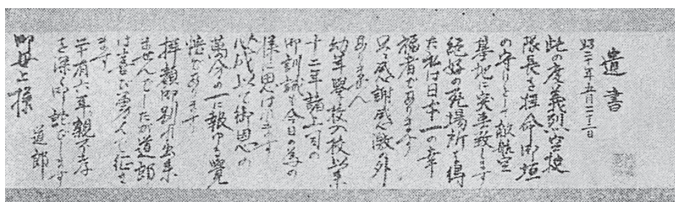 遺書
昭二十年五月二十二日
此の度義烈空挺
隊長を拝命御垣
の守りとして敵航空
基地に突撃致します
絶好の死場所を得
た私は日本一の幸
福者であります
只感謝感激の外
ありません
幼年学校入校以来
十二年諸上司の
御訓誡も今日の為の
様に思はれます
必成以て御恩の
萬分の一に報ゆる覚
悟であります
拝顔御別れ出来
ませんでしたが道郎
は喜び勇んで征き
ます
二十有六年親不孝
を深く御詫びします
道郎
御母上様